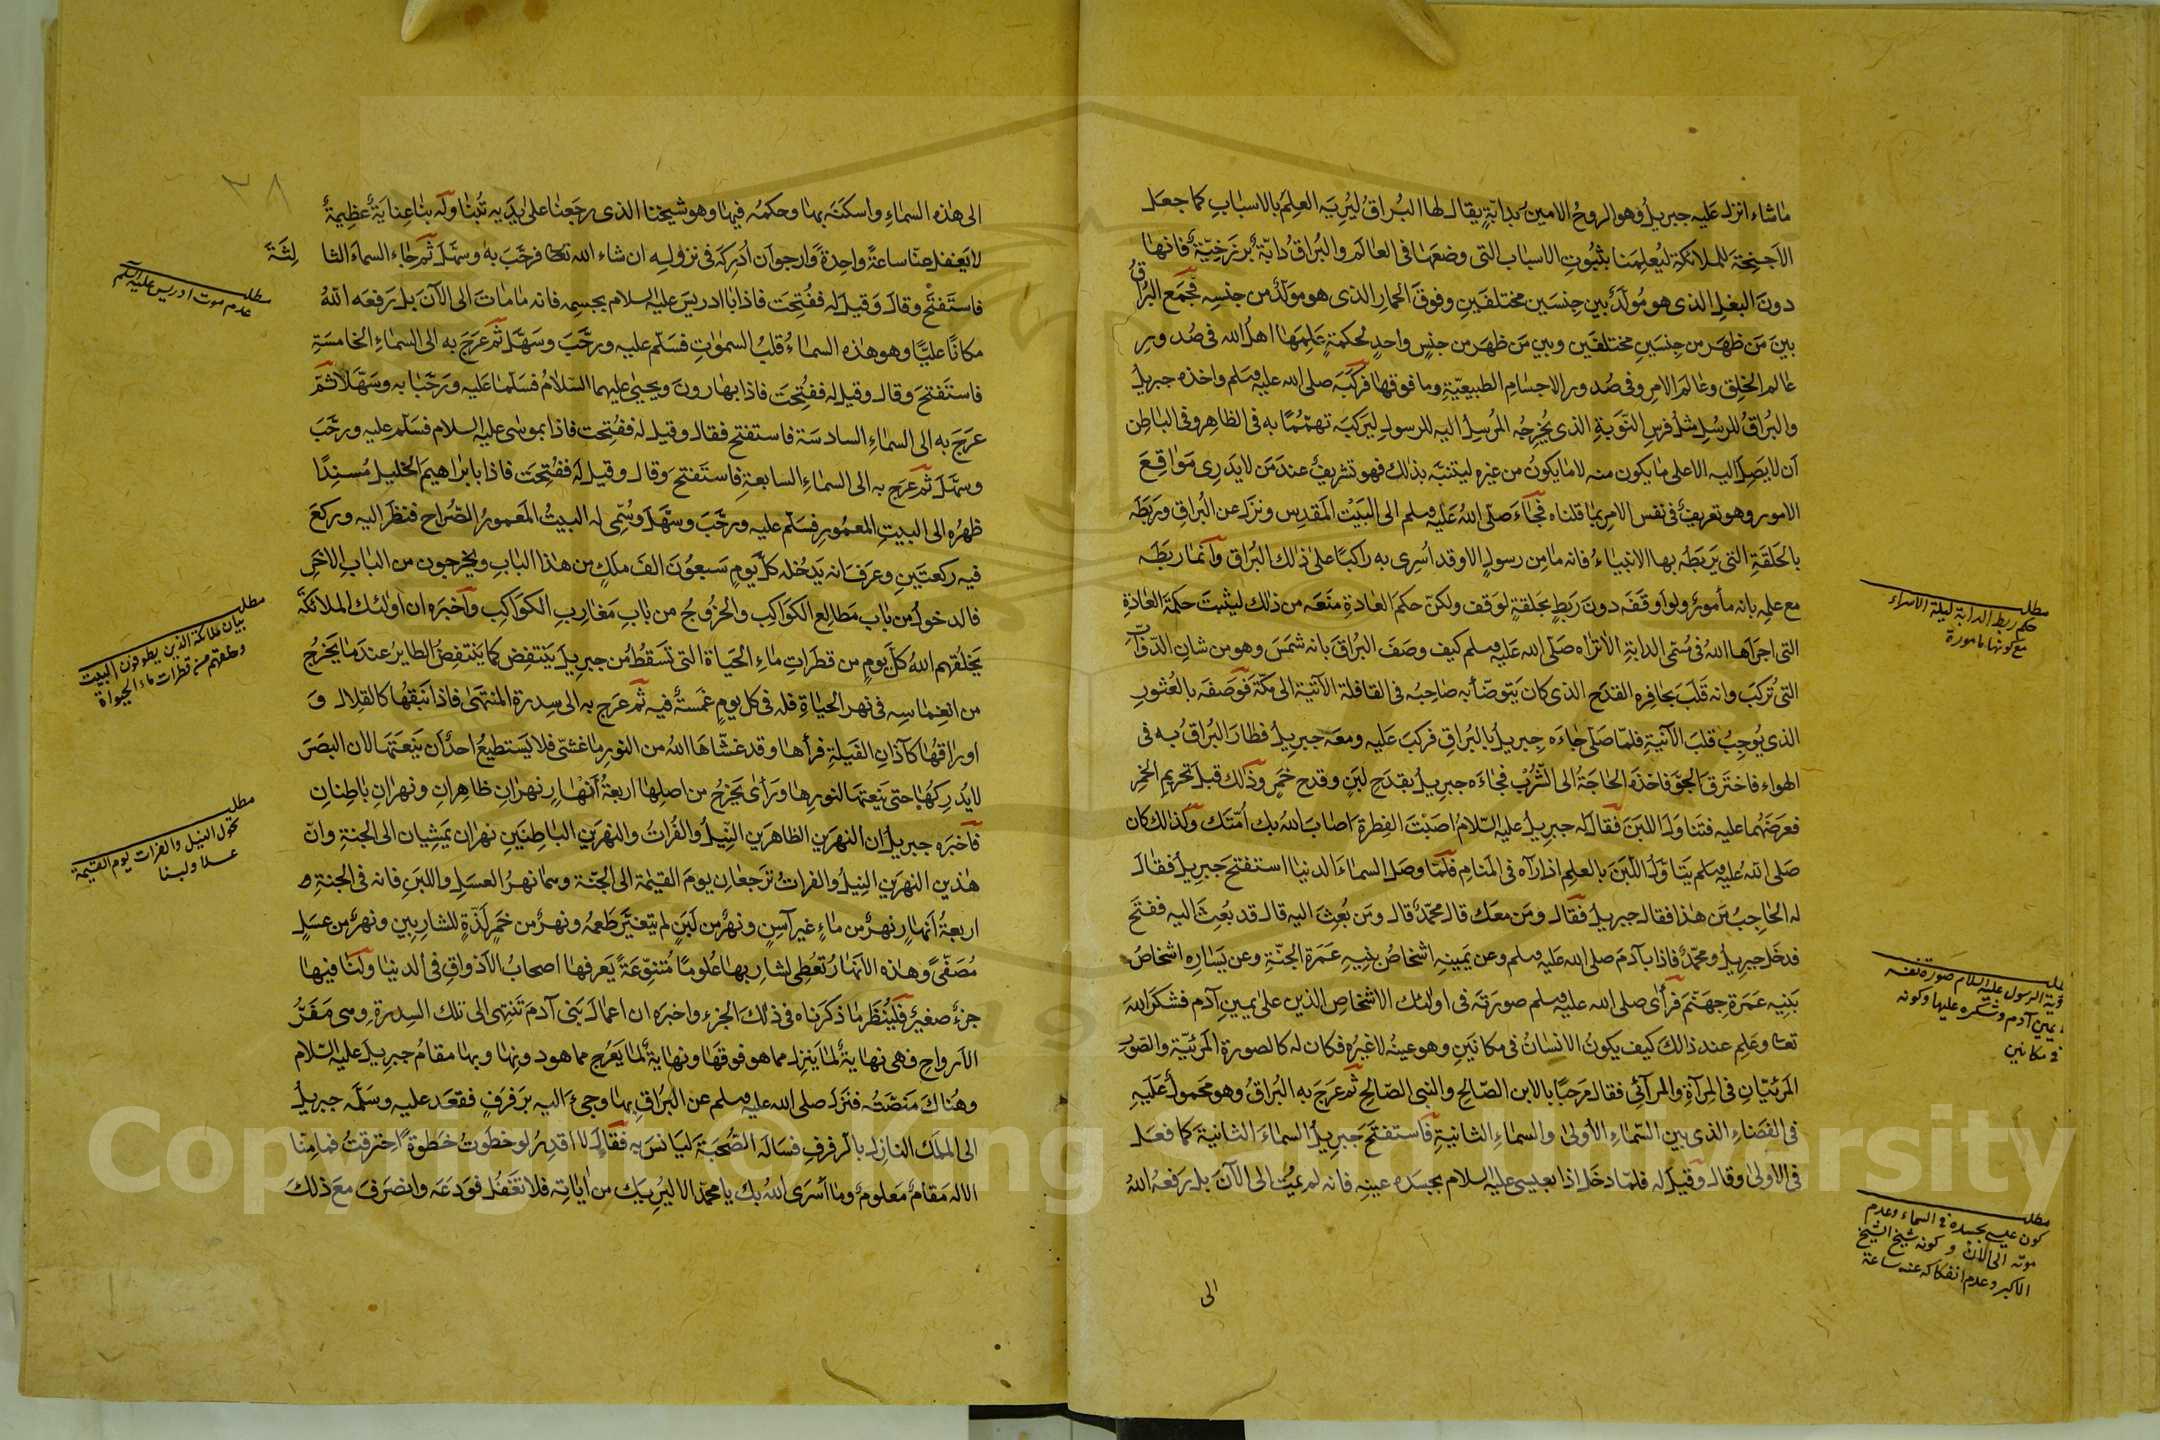 ماشاء انزل عليه جبريل وهو الروح الامين بدابة يقال لها البراق ليريه العلم بالاسباب كما جعل
الاجنحة للملائكة ليعلمنا بثبوت الاسباب التى وضعها فى العالم والبراق دابة برزخية فانها
دون البغل الذى هو مولد بين جنسين مختلفين وفوق الحمار الذى هو مولد من جنسه فجمع البراق
بين من ظهر من جنسين مختلفين وبين من ظهر من جنس واحد لحكمة علمها اهل الله فى صدور
عالم الخلق وعالم الامر وفى صدور الاجسام الطبيعية وما فوقها فركبه صلى الله عليه وسلم واخذه جبريل
والبراق للرسل مثل فرس النوبة الذى يخرجه المرسل اليه للرسول ليركبه تهمما به فى الظاهر وفى الباطن
ان لا يصل اليه الا على ما يكون منه لا ما يكون من غيره ليتنبه بذلك فهو تشريف عند من لا يدرى مواقع
الامور وهو تعريف فى نفس الامر بما قلناه فجاء صلى الله عليه وسلم الى البيت المقدس ونزل عن البراق وربطه
بالحلقة التى يربطه بها الانبياء فانه ما من رسول الا وقد اسرى به راكبا على ذلك البراق وانما ربطه
مع علمه بانه مأمور ولو اوقفه دون ربط بحلقة لوقف ولكن حكم العادة منعه من ذلك ليثبت حكمة العادة
التى اجراها الله فى مسمى الدابة الا تراه صلى الله عليه وسلم كيف وصف البراق بانه شمس وهو من شان الدواب
التى تركب وانه قلب بحافره القدح الذى كان يتوضأ به صاحبه فى القافلة الآتية الى مكة فوصفه بالعثور
الذى يوجب قلب الآنية فلما صلى جاءه جبريل بالبراق فركب عليه ومعه جبريل فطار البراق به فى
الهواء فاخترق الجو فاخذه الحاجة الى الشرب فجاءه جبريل بقدح لبن وقدح خمر وذلك قبل تحريم الخمر
فعرضهما عليه فتناول اللبن فقال له جبريل عليه السلام اصبت الفطرة اصاب الله بك امتك وكذلك كان
صلى الله عليه وسلم يتاول اللبن بالعلم اذا رآه فى المنام فلما وصل السماء الدنيا استفتح جبريل فقال
له الحاجب من هذا فقال جبريل فقال ومن معك قال محمد قال ومن بعث اليه قال قد بعث اليه ففتح
فدخل جبريل ومحمد فاذا بآدم صلى الله عليه وسلم وعن يمينه اشخاص بنيه عمرة الجنة وعن يساره اشخاص
بنيه عمرة جهنم فرأى صلى الله عليه وسلم صورته فى اولئك الاشخاص الذين على يمين آدم فشكر الله
تعا وعلم عند ذلك كيف يكون الانسان فى مكانين وهو عينه لا غيره فكان له كالصورة المرئية والصور
المرئيان فى المرآة والمرآئى فقال مرحبا بالابن الصالح والنبى الصالح ثم عرج به البراق وهو محمول عليه
فى الفضاء الذى بين السماء الاولى والسماء الثانية فاستفتح جبريل السماء الثانية كما فعل
فى الاولى وقال وقيل له فلما دخل اذا بعيسى عليه السلام بجسده عينه فانه لم يمت الى الآن بل رفعه الله
الى
مطلب
حكم ربط الدابة ليلة الاسراء
مع كونها مامورة
رؤية الرسول عليه السلام صورة نفسه
يمين آدم وشكره عليها وكونه
فى مكانين
مطلب
كون عيسى بجسده فى السماء وعدم
موته الى الآن وكونه شيخ الشيخ
الاكبر وعدم انفكاكه عنه ساعة
٣٨
الى هذه السماء واسكنه بها وحكمه فيها وهو شيخنا الذى رجعنا على يديه تبنا وله بنا عناية عظيمة
لا يغفل عنا ساعة واحدة وارجو ان ادركه فى نزوله ان شاء الله تعا فرحب به وسهل ثم جاء السماء الثا
لثة
فاستفتح وقال وقيل له ففتحت فاذا با ادريس عليه السلام بجسمه فانه ما مات الى الآن بل رفعه الله
مكانا عليا وهو هذه السماء قلب السموات فسلم عليه ورحب وسهل ثم عرج به الى السماء الخامسة
فاستفتح وقال وقيل له ففتحت فاذا بهارون ويحيى عليهما السلام فسلما عليه ورحبا به وسهلا ثم
عرج به الى السماء السادسة فاستفتح فقال وقيل له ففتحت فاذا بموسى عليه السلام فسلم عليه ورحب
وسهل ثم عرج به الى السماء السابعة فاستفتح وقال وقيل له ففتحت فاذا بابراهيم الخليل مسندا
ظهره الى البيت المعمور فسلم عليه ورحب وسهل وسمى له البيت المعمور الضراح فنظر اليه وركع
فيه ركعتين وعرف انه يدخله كل يوم سبعون الف ملك من هذا الباب ويخرجون من الباب الاخر
فالدخول من باب مطالع الكواكب والخروج من باب مغارب الكواكب واخبره ان اولئك الملائكة
يخلقهم الله كل يوم من قطرات ماء الحياة التى تسقط من جبريل ينتفض كما ينتفض الطاير عندما يخرج
من انغماسه فى نهر الحياة فله فى كل يوم غمسة فيه ثم عرج به الى سدرة المنتهى فاذا نبقها كالقلال و
اوراقها كآذان الفيلة فرأها وقد غشاها الله من النور ما غشى فلا يستطيع احد ان ينعتها لان البصر
لا يدركها حتى ينعتها لنورها ورأى يخرج من اصلها اربعة أنهار نهران ظاهران ونهران باطنان
فأخبره جبريل ان النهرين الظاهرين النيل والفرات والنهرين الباطنين نهران يمشيان الى الجنة وان
هذين النهرين النيل والفرات ترجعان يوم القيمة الى الجنة وهما نهر العسل واللبن فانه فى الجنة و
اربعة أنهار نهر من ماء غير آسن ونهر من لبن لم يتغير طعمه ونهر من خمر لذة للشاربين ونهر من عسل
مصفى وهذه الانهار تعطى لشاربها علوما متنوعة يعرفها اصحاب الاذواق فى الدنيا ولنا فيها
جزء صغير فلينظر ما ذكرناه فى ذلك الجزء واخبره ان اعمال بنى آدم تنتهى الى تلك السدرة وهى مقر
الارواح فهى نهاية لما ينزل مما هو فوقها ونهاية لما يعرج مما هو دونها وبها مقام جبريل عليه السلام
وهناك منصته فنزل صلى الله عليه وسلم عن البراق بها وجىء اليه برفرف فقعد عليه وسلمه جبريل
الى الملك النازل بالرفرف فساله الصحبة ليانس به فقال لا اقدر لو خطوت خطوة احترقت فما منا
الا له مقام معلوم وما أسرى الله بك يا محمد الا ليريك من اياته فلا تغفل فودعه وانصرف مع ذلك
مطلب
عدم موت ادريس عليه السلم
مطلب
بيان ملائكة الذين يطوفون البيت
وخلقتهم من قطرات ماء الحيواة
مطلب
تحول النيل والفرات يوم القيمة
عسلا ولبنا
Copyright © King Saud University